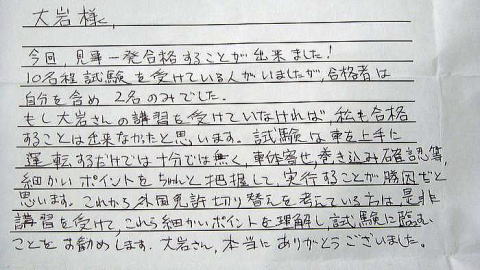 大岩様へ
今回、見事一発合格することが出来ました!
10名程試験を受けている人がいましたが、合格者は
自分を含め2名のみでした。
もし大岩さんの講習を受けていなければ、私も合格
することは出来なかったと思います。試験は車を上手に
運転するだけでは十分では無く、車体寄せ、巻き込み確認等、
細かいポイントをちゃんと把握して、実行することが勝因だと
思います。これから外国免許切り替えを考えている方は是非
講習を受けて、これら細かいポイントを理解し試験に臨む
ことをお勧めします。大岩さん、本当にありがとうございました。